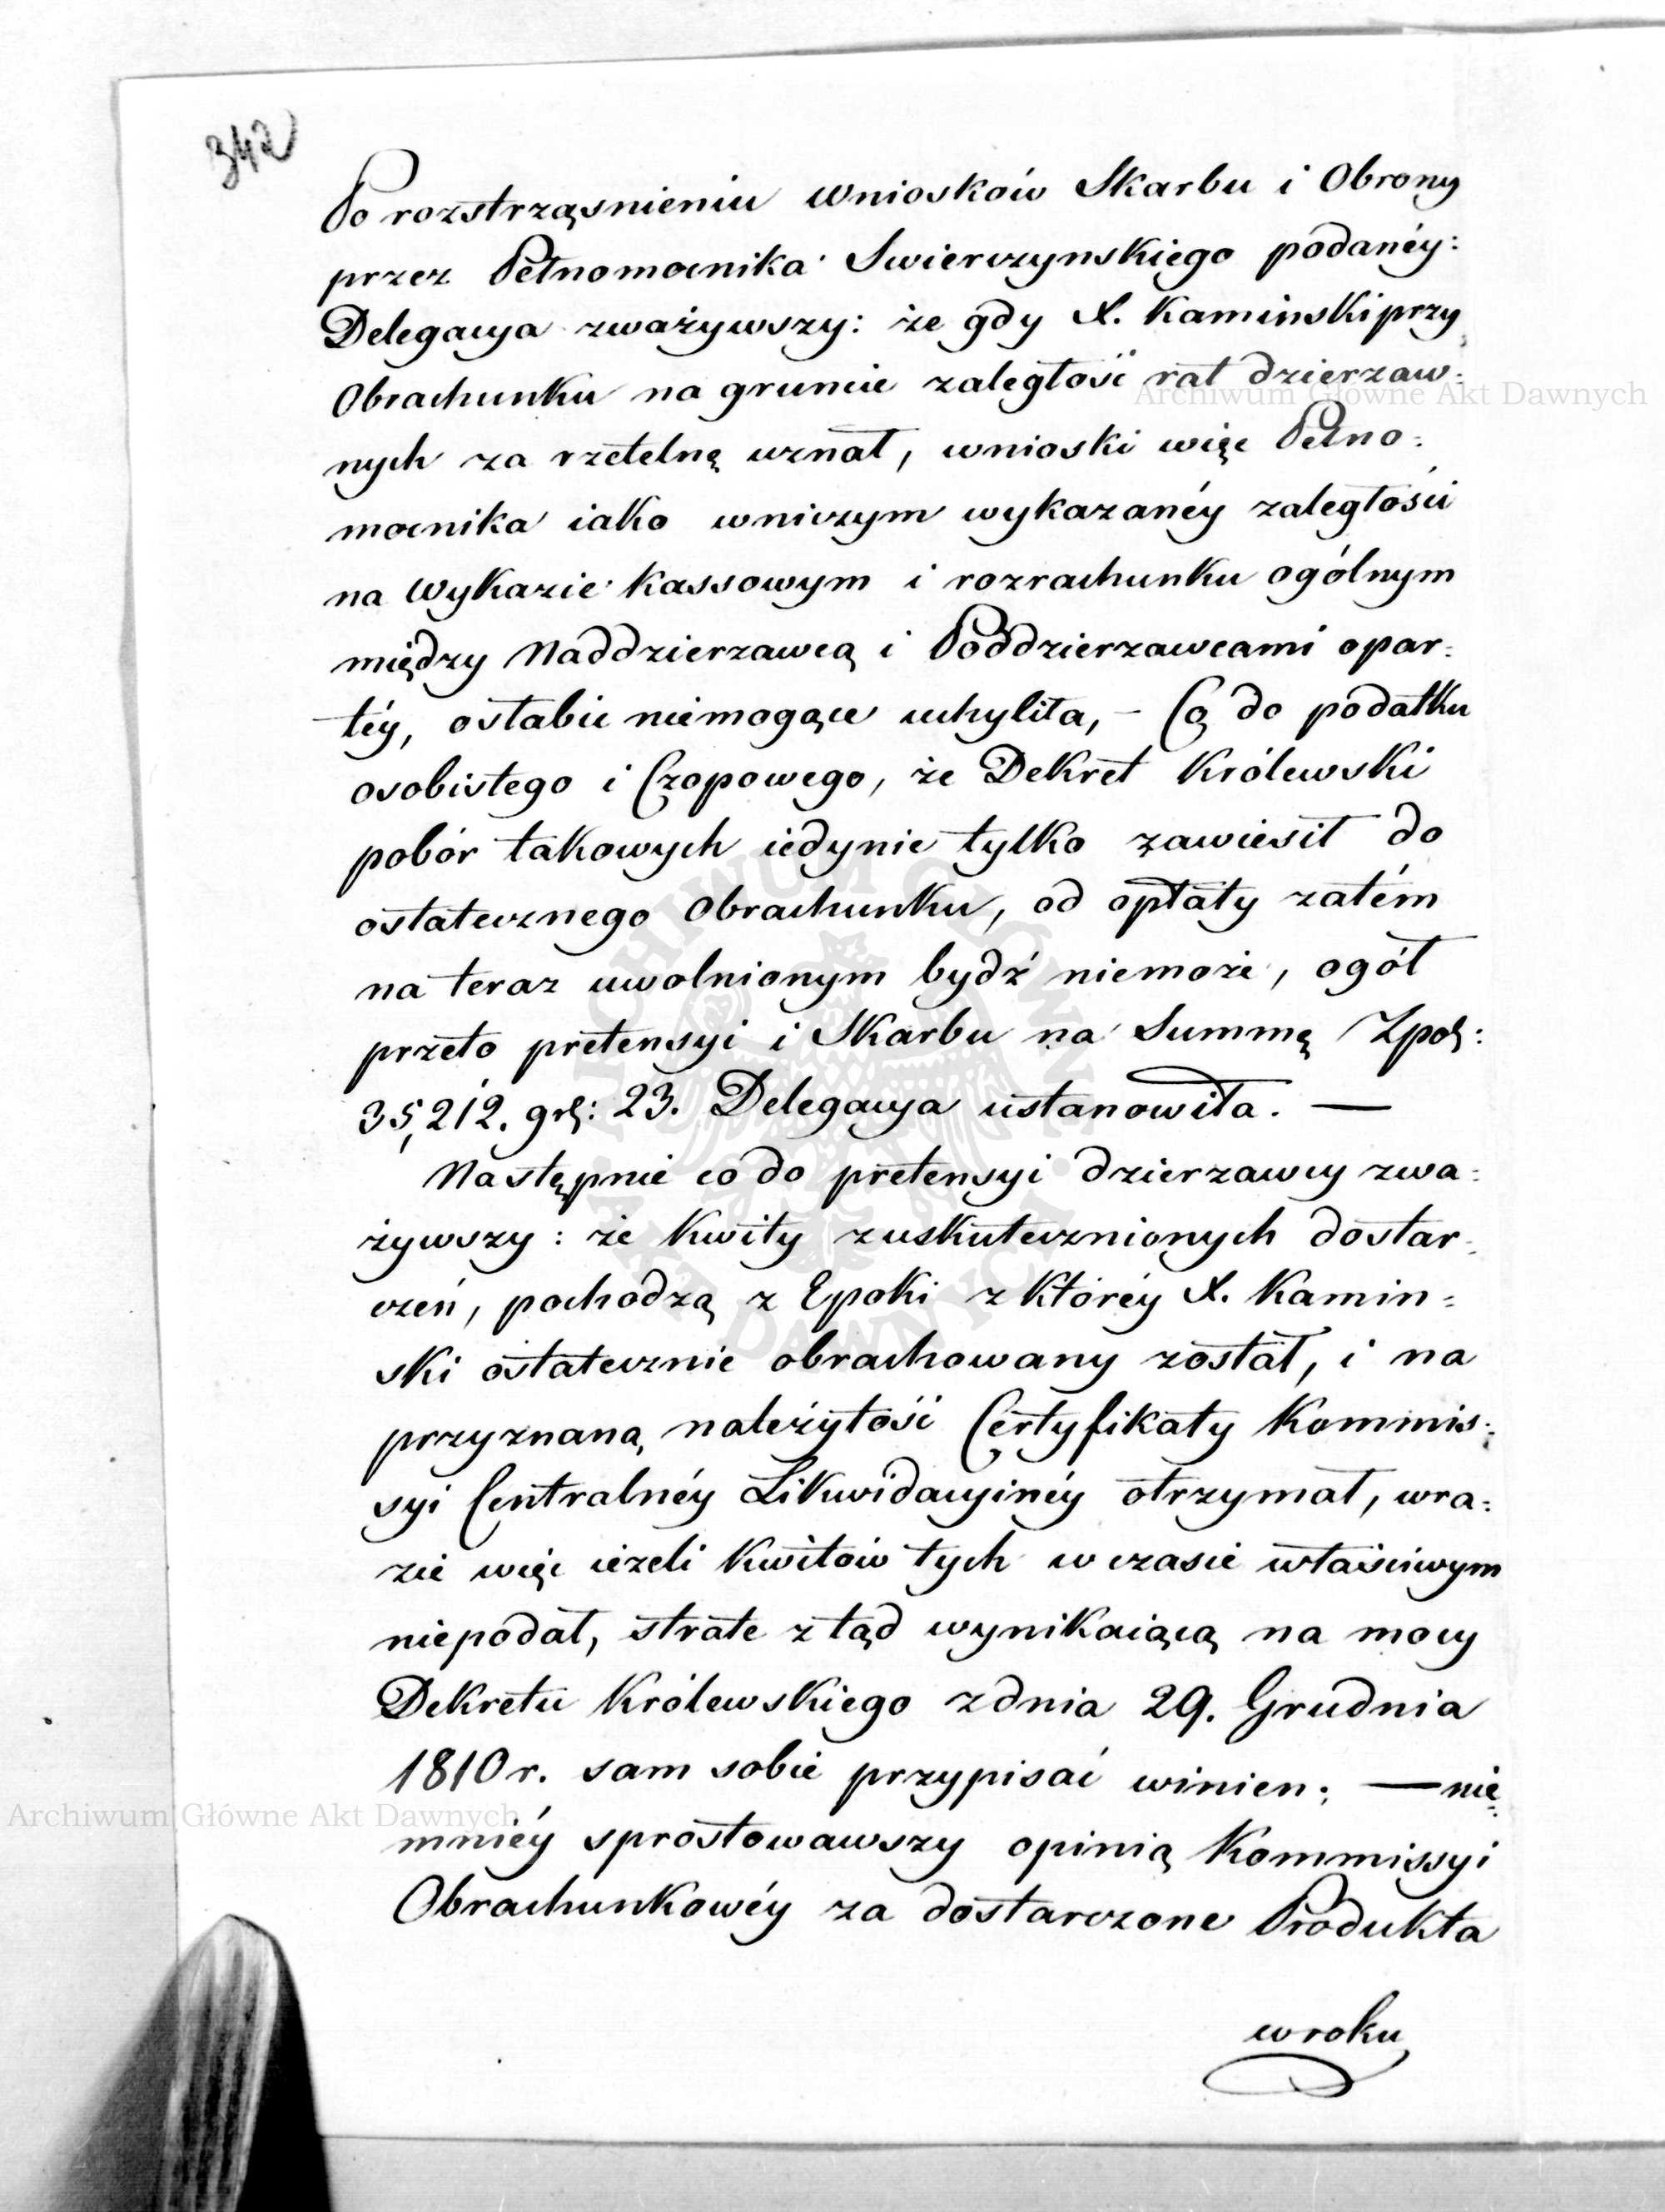 342
Po rozstrząsnieniu Wniosków Skarbu i Obrony
przez Pełnomocnika Swierczynskiego podanéy:
Delegacya zważywszy: że gdy X. Kaminski przy
Obrachunku na gruncie zaległość rat dzierzaw:
nych za rzetelną uznał, wnioski więc Pełno:
mocnika iako wniczym wykazanéy zaległości
na Wykazie Kassowym i rozrachunku ogólnym
między Naddzierzawcą i Poddzierzawcami opar:
téy, osłabić niemogące uchyliła, – Co do podatku
osobistego i Czopowego, że Dekret Królewski
pobór takowych iedynie tylko zawiesił do
ostatecznego Obrachunku, od opłaty zatém
na teraz uwolnionym bydź niemoże, ogół
przeto pretensyi i Skarbu na Summę Zpol:
35,212. gr: 23. Delegacya ustanowiła. —
Następnie co do pretensyi dzierzawcy zwa:
żywszy: że Kwity zuskutecznionych dostar:
czeń, pochodzą z Epoki z Któréy X. Kamin:
ski ostatecznie obrachowany został, i na
przyznaną należytość Certyfikaty Kommis:
syi Centralnéy Likwidacyinéy otrzymał, wra:
zie więc ieżeli Kwitów tych w czasie właściwym
niepodał, strate ztąd wynikaiącą na mocy
Dekretu Królewskiego zdnia 29. Grudnia
1810 r. sam sobie przypisać winien; — nie:
mniéy sprostowawszy opinią Kommissyi
Obrachunkowéy za dostarczone Produkta
wroku
Archiwum Główne Akt Dawnych
Archiwum Główne Akt Dawnych
ARCHIWUM GŁÓWNE AKT DAWNYCH